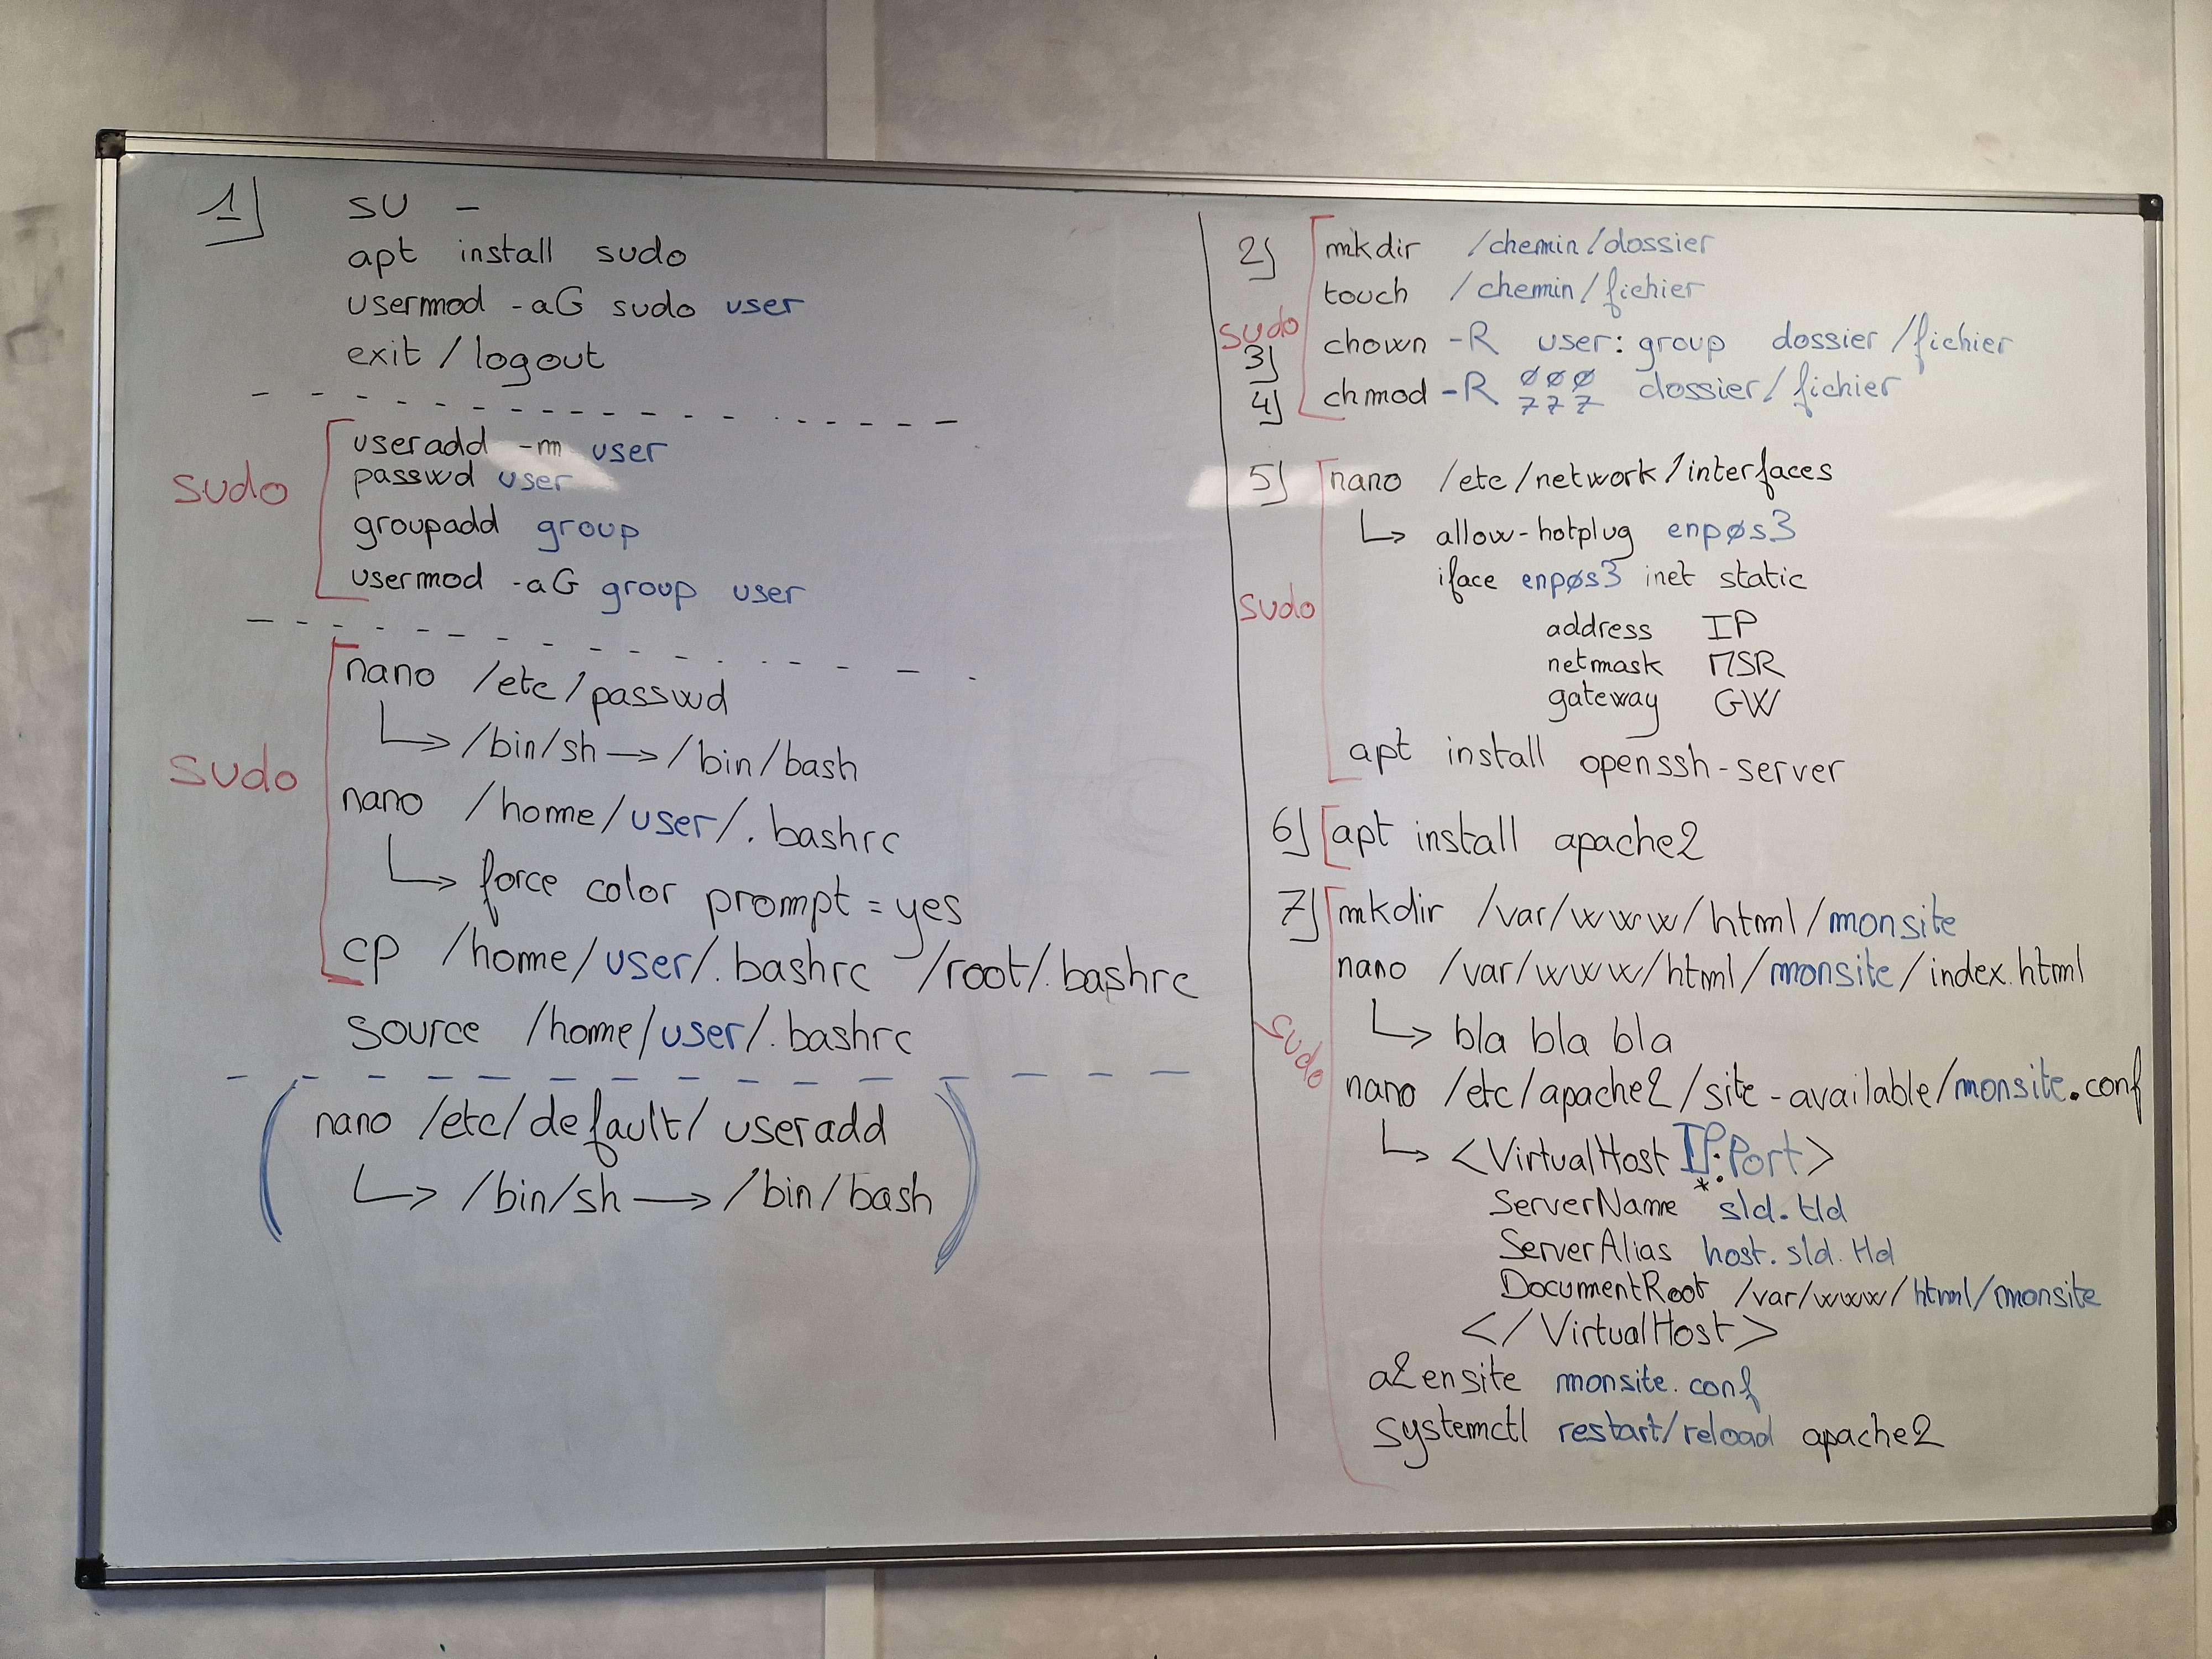 1) su -
apt install sudo
usermod -aG sudo user
exit / logout
useradd -m user
passwd user
sudo
groupadd group
usermod -aG group user
nano /etc/passwd
↳ /bin/sh → /bin/bash
sudo
nano /home/user/.bashrc
↳ force color prompt = yes
cp /home/user/.bashrc /root/.bashrc
source /home/user/.bashrc
( nano /etc/default/useradd
↳ /bin/sh → /bin/bash )
2) mkdir /chemin/dossier
touch /chemin/fichier
sudo
3) chown -R user:group dossier/fichier
4) chmod -R ØØØ dossier/fichier
777
5) nano /etc/network/interfaces
↳ allow-hotplug enpØs3
iface enpØs3 inet static
sudo
address IP
netmask MSR
gateway GW
apt install openssh-server
6) apt install apache2
7) mkdir /var/www/html/monsite
nano /var/www/html/monsite/index.html
↳ bla bla bla
sudo
nano /etc/apache2/site-available/monsite.conf
↳ <VirtualHost IP:Port>
*:
ServerName sld.tld
ServerAlias host.sld.tld
DocumentRoot /var/www/html/monsite
</VirtualHost>
a2ensite monsite.conf
systemctl restart/reload apache2